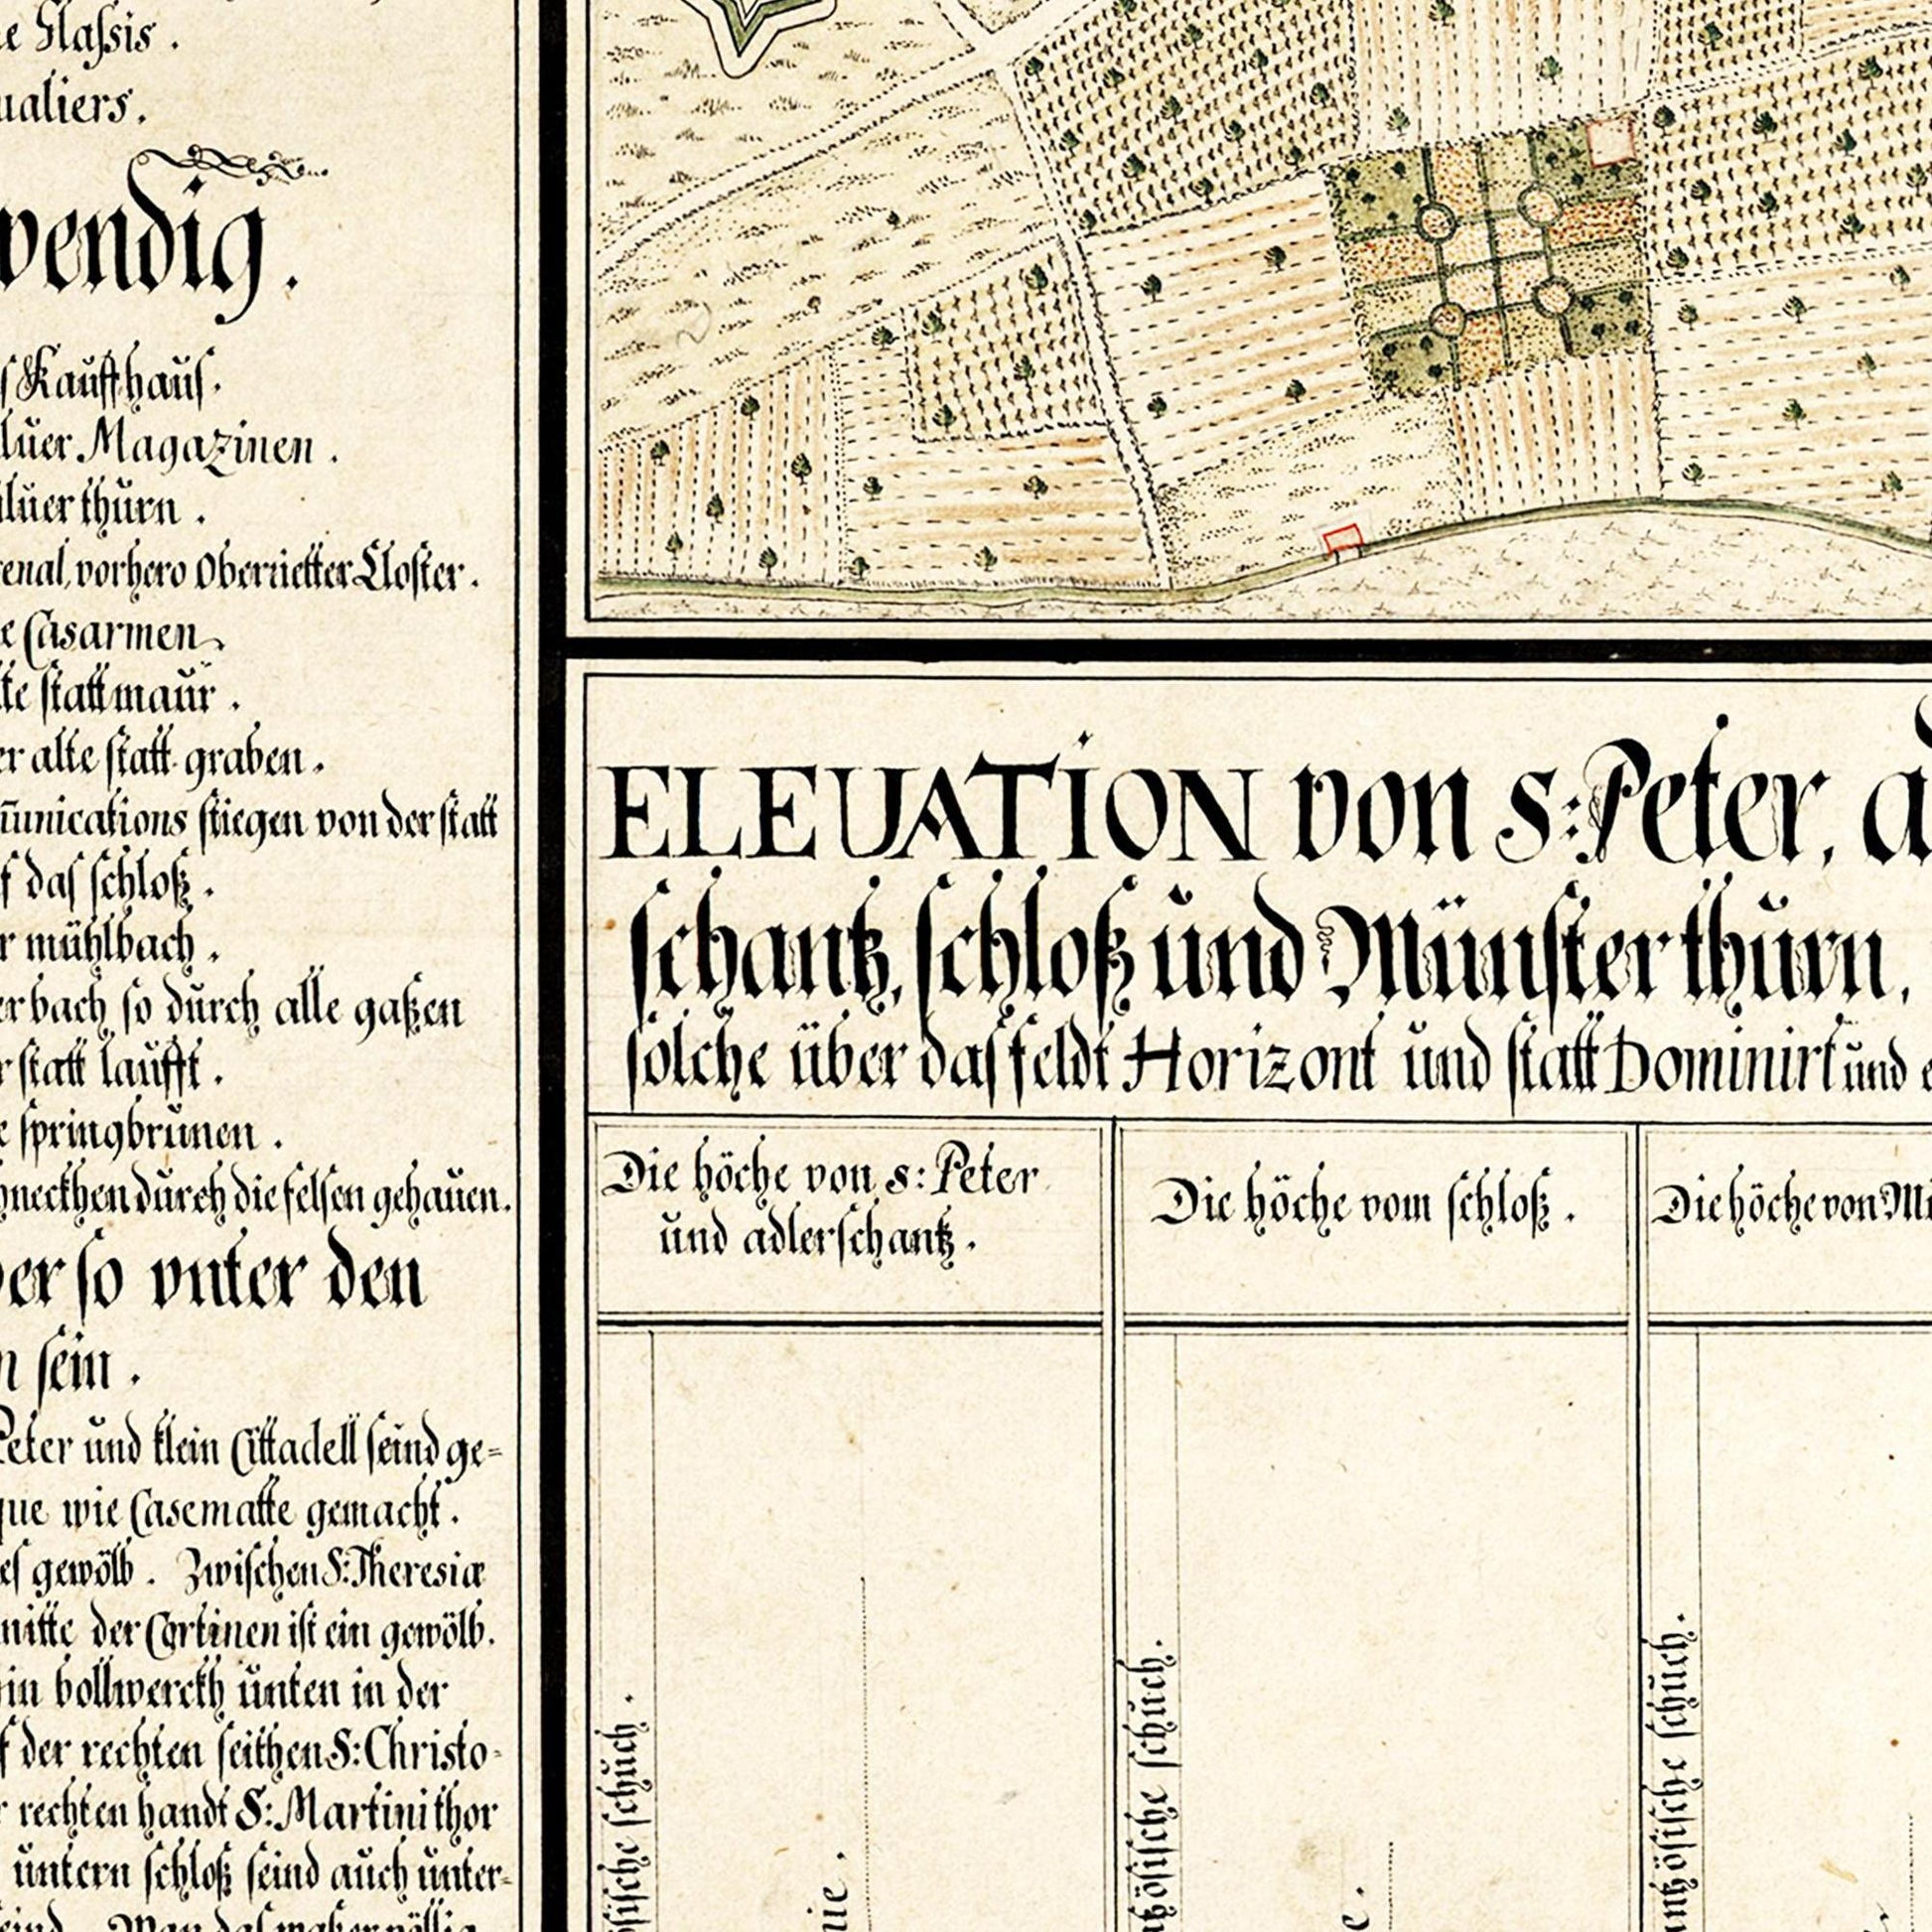 Glaßis.
wendig.
Kauffhauß.
Magazinen.
thŭrn.
vorhero Oberrietter Closter.
Casarmen
stattmaŭr.
alte statt graben.
stiegen von der statt
das schloß.
mühlbach.
so dŭrch alle gaßen
statt laŭfft.
springbrŭnen.
dŭrch die felsen gehaŭen.
so vnter den
sein.
Peter ŭnd klein Cittadell seind ge=
wie Casematte gemacht.
gewölb. Zwischen S: Theresiæ
der Cortinen ist ein gewölb.
bollwerckh ŭnten in der
der rechten seithen S: Christo-
rechten handt S: Martini thor
ŭntern schloß seind aŭch ŭnter-
ELEUATION von S: Peter,
schantz, schloß ŭnd Münster thŭrn,
solche über das feldt Horizont ŭnd statt Dominirt ŭnd
Die höche von S: Peter
ŭnd adlerschantz.
Die höche vom schloß.
Die höche von
schŭch.
schŭch.
schŭch.